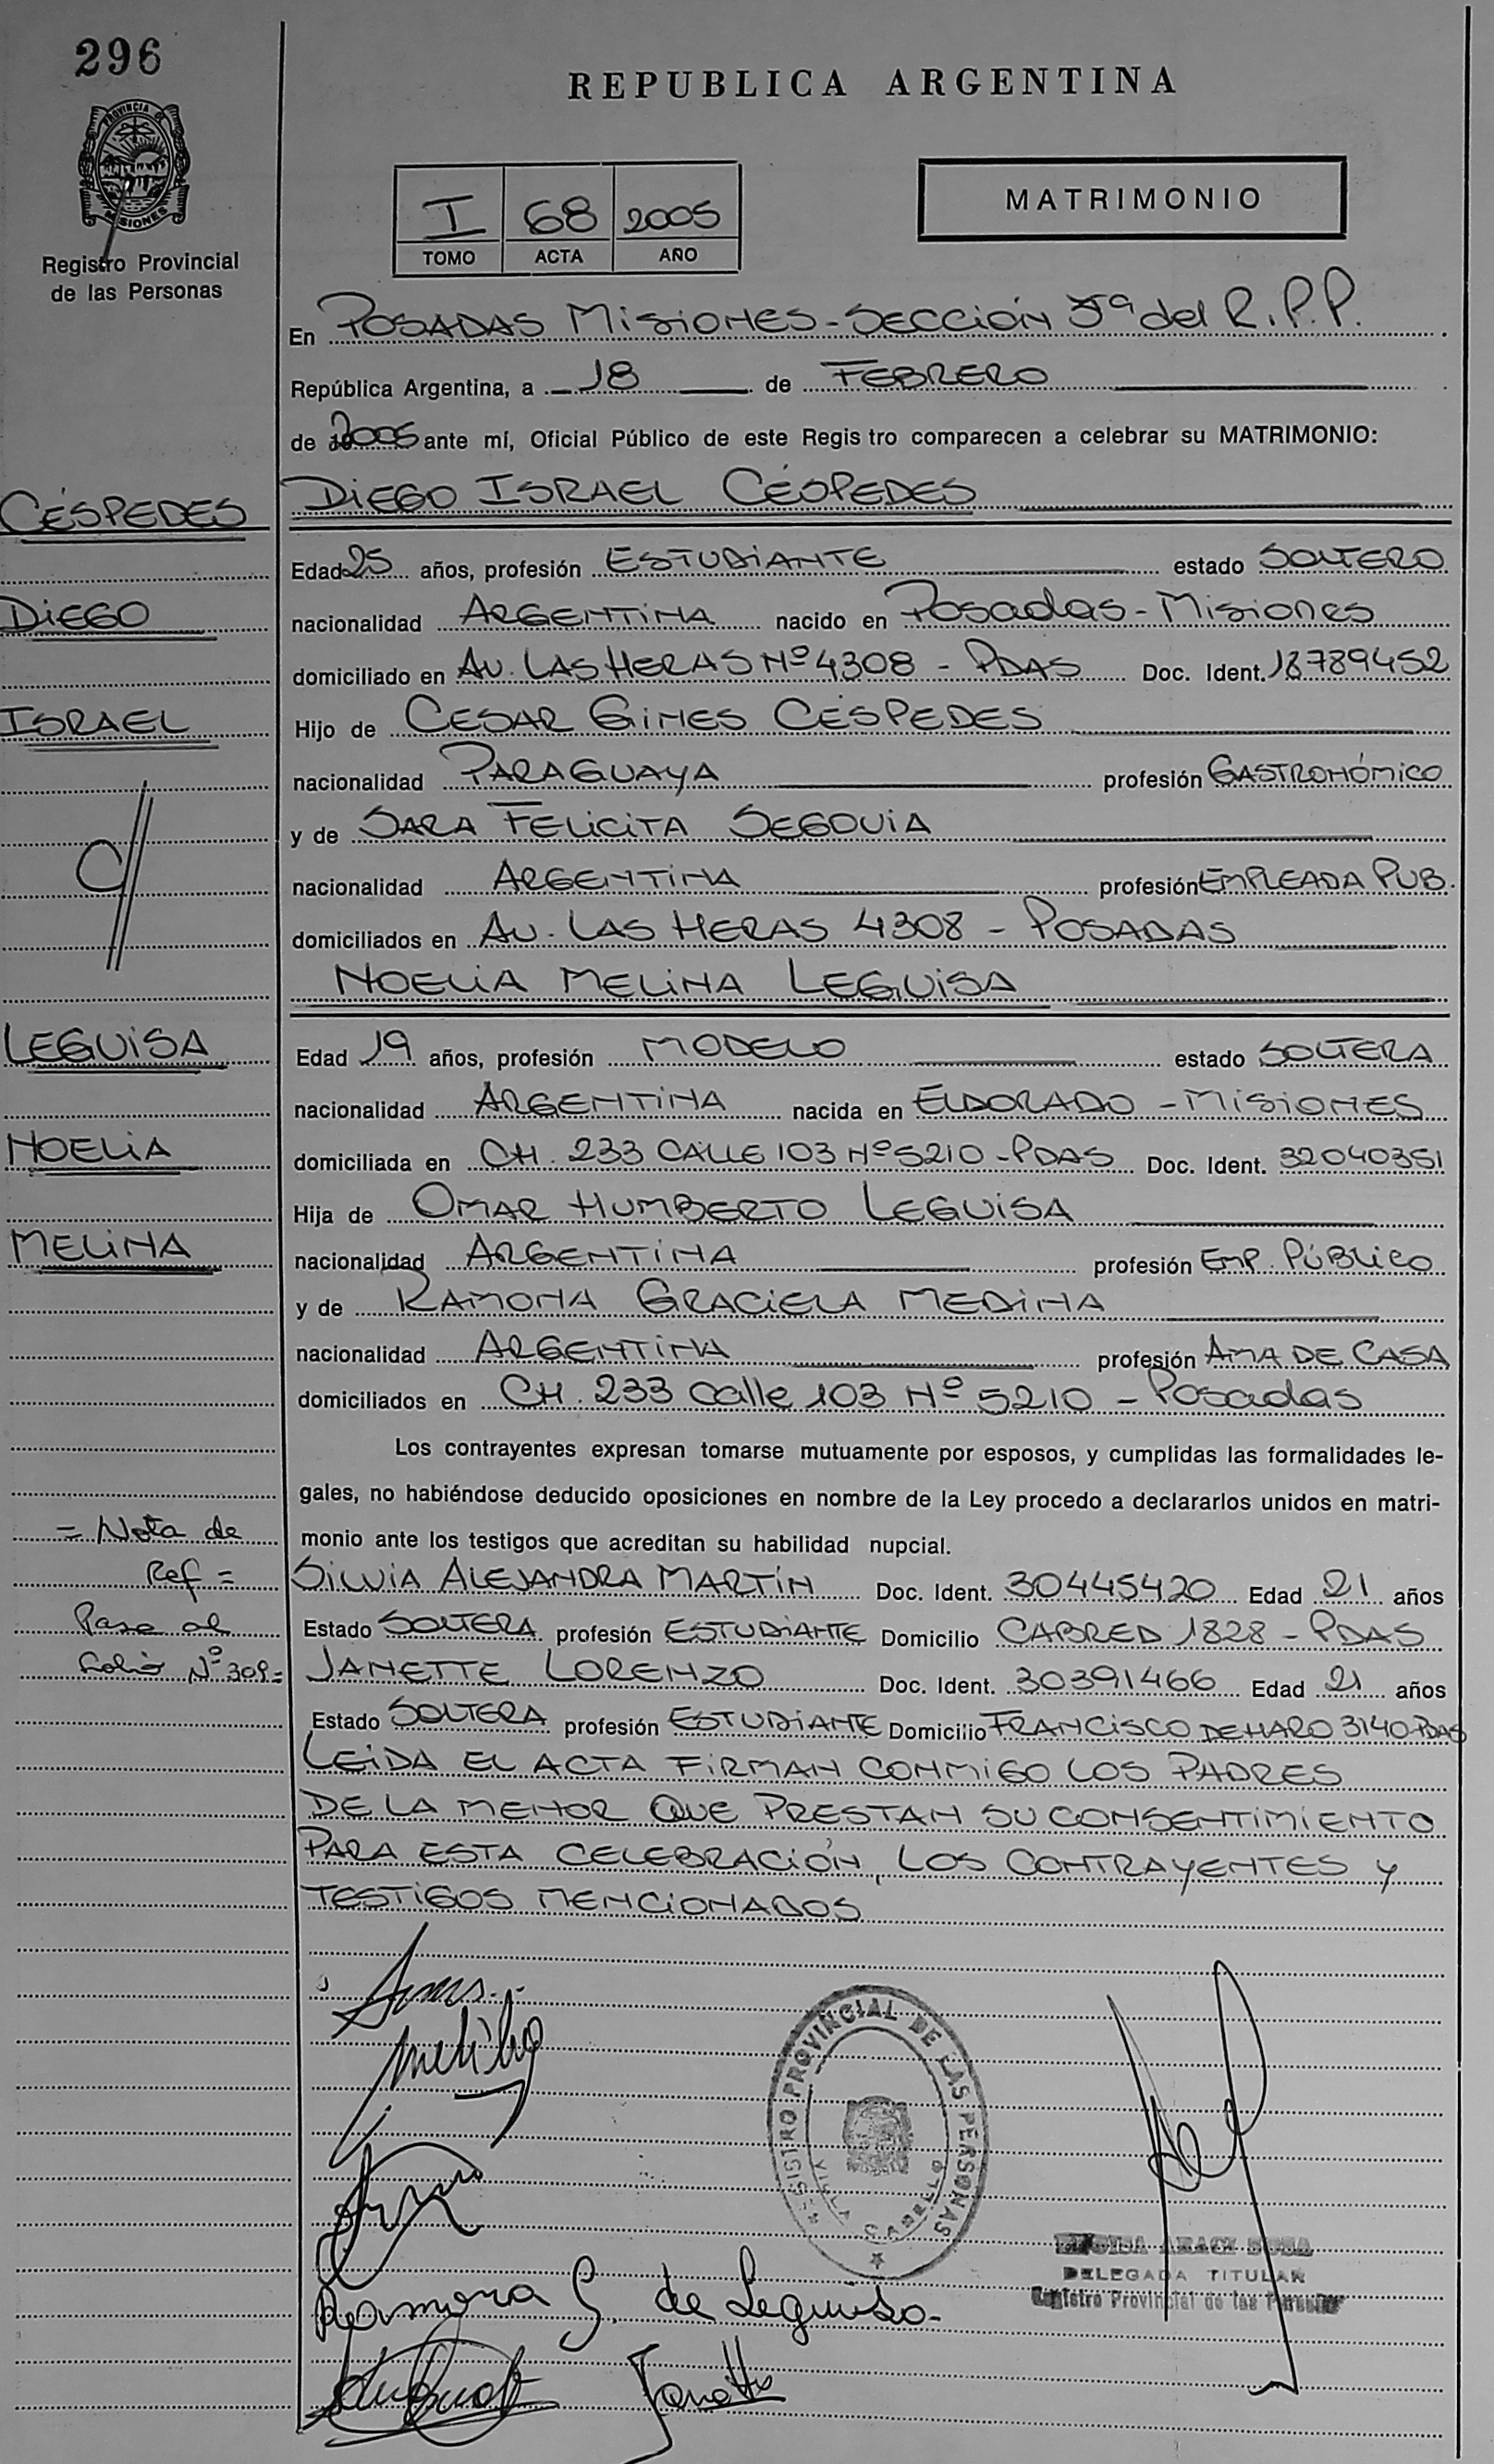 296
REPUBLICA ARGENTINA
PROVINCIA DE MISIONES
Registro Provincial
de las Personas
I 68 2005
TOMO ACTA AÑO
MATRIMONIO
En POSADAS MISIONES - SECCIÓN 5ª del R.P.P.
República Argentina, a 18 de FEBRERO
de 2005 ante mí, Oficial Público de este Regis tro comparecen a celebrar su MATRIMONIO:
CÉSPEDES
DIEGO ISRAEL CÉSPEDES
Edad 25 años, profesión ESTUDIANTE estado SOLTERO
DIEGO
nacionalidad ARGENTINA nacido en Posadas - Misiones
domiciliado en AV. LAS HERAS Nº 4308 - PDAS Doc. Ident. 18789452
ISRAEL
Hijo de CESAR GINES CÉSPEDES
nacionalidad PARAGUAYA profesión GASTRONÓMICO
y de SARA FELICITA SEGOVIA
C//
nacionalidad ARGENTINA profesión EMPLEADA PUB.
domiciliados en AV. LAS HERAS 4308 - POSADAS
NOELIA MELINA LEGUISA
LEGUISA
Edad 19 años, profesión MODELO estado SOLTERA
nacionalidad ARGENTINA nacida en ELDORADO - MISIONES
NOELIA
domiciliada en CH. 233 CALLE 103 Nº 5210 - PDAS Doc. Ident. 32040351
Hija de OMAR HUMBERTO LEGUISA
MELINA
nacionalidad ARGENTINA profesión EMP. PÚBLICO
y de RAMONA GRACIELA MEDINA
nacionalidad ARGENTINA profesión AMA DE CASA
domiciliados en CH. 233 calle 103 Nº 5210 - Posadas
Los contrayentes expresan tomarse mutuamente por esposos, y cumplidas las formalidades le-
gales, no habiéndose deducido oposiciones en nombre de la Ley procedo a declararlos unidos en matri-
monio ante los testigos que acreditan su habilidad nupcial.
= Nota de
Ref =
Pase al
Folio Nº 309=
SILVIA ALEJANDRA MARTÍN Doc. Ident. 30445420 Edad 21 años
Estado SOLTERA profesión ESTUDIANTE Domicilio CABRED 1828 - PDAS
JANETTE LORENZO Doc. Ident. 30391466 Edad 21 años
Estado SOLTERA profesión ESTUDIANTE Domicilio FRANCISCO DE HARO 3140-PDAS
LEIDA EL ACTA FIRMAN CONMIGO LOS PADRES
DE LA MENOR QUE PRESTAN SU CONSENTIMIENTO
PARA ESTA CELEBRACIÓN, LOS CONTRAYENTES Y
TESTIGOS MENCIONADOS
REGISTRO PROVINCIAL DE LAS PERSONAS
VILLA CABELLO
ARACI SOSA
DELEGADA TITULAR
Registro Provincial de las Personas
Ramona G. de Leguisa
Janette